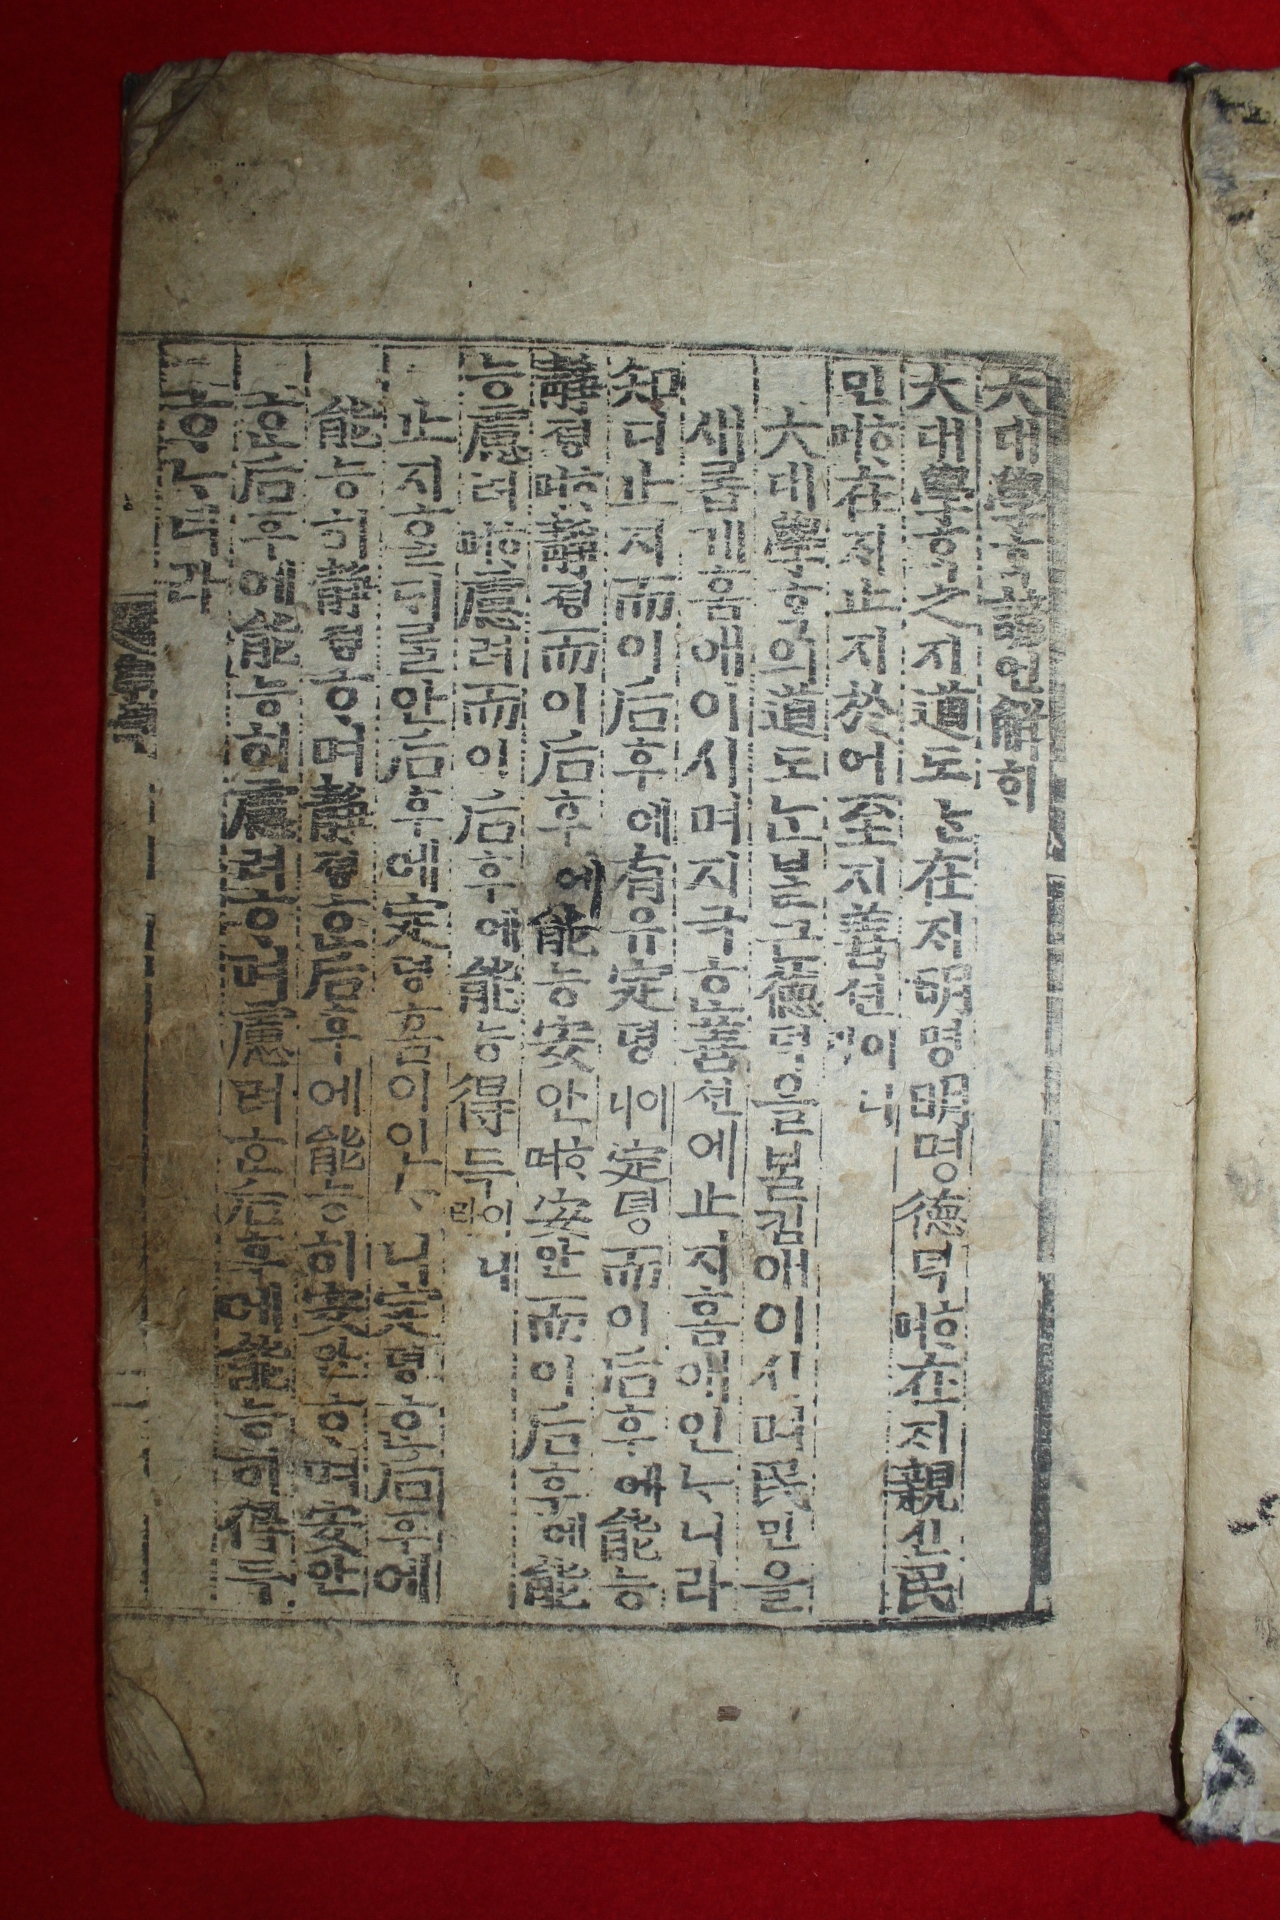 大대學ᄒᆞᆨ諺언解ᄒᆡ
大대學ᄒᆞᆨ之지道도ᄂᆞᆫ在ᄌᆡ明명明명德덕ᄒᆞ며在ᄌᆡ親신民
민ᄒᆞ며在ᄌᆡ止지於어至지善션이니라
大대學ᄒᆞᆨ의道도ᄂᆞᆫᄇᆞᆯᄀᆞᆫ德덕을ᄇᆞᆯ킴애이시며民민을
새롭게홈애이시며지극ᄒᆞᆫ善션에止지홈애인ᄂᆞ니라
知디止지而이后후에有유定뎡이니定뎡而이后후에能능
靜졍ᄒᆞ며靜졍而이后후에能능安안ᄒᆞ며安안而이后후에能
능慮려ᄒᆞ며慮려而이后후에能능得득이니라
止지ᄒᆞᆯᄃᆡᄅᆞᆯ안后후에定뎡홈이인ᄂᆞ니定뎡ᄒᆞᆫ后후에
能능히靜졍ᄒᆞ며靜졍ᄒᆞᆫ后후에能능히安안ᄒᆞ며安안
ᄒᆞᆫ后후에能능히慮려ᄒᆞ며慮려ᄒᆞᆫ后후에能능히得득
ᄒᆞᄂᆞ니라